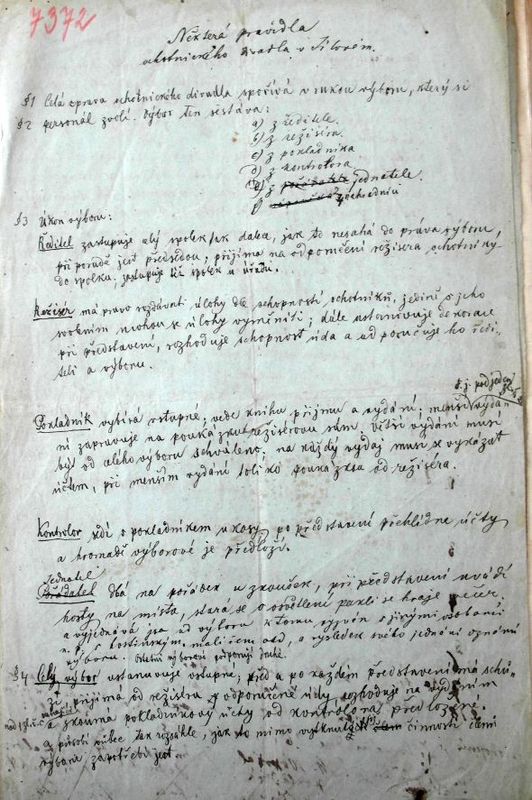 7372
Některá pravidla
ochotnického divadla v
§1 Celá správa ochotnického divadla spočívá v rukou výboru, který si
§2 personál zvolí. Výbor ten sestává:
a) z ředitele.
b) z režiséra.
c) z pokladníka
d) z kontrolora.
e) z jednatele.
f)
§3 Úkon výboru:
Ředitel zastupuje celý spolek tak dalece, jak to nesahá do práva výboru,
při poradě jest předsedou, přijímá na odporučení režiséra ochotníky
do spolku, zastupuje též spolek u úřadu.
Režisér má právo rozdávati úlohy dle schopností ochotníků, jedině s jeho
svolením mohou se úlohy vyměniti; dále ustanovuje dekorace
při představení, rozhoduje schopnost úda a odporučuje ho ředi-
teli a výboru.
t. j. pod jeden
Pokladník vybírá vstupné, vede knihu příjmu a vydání; menší vydá-
ní zapravuje na poukázku režisérovu sám. Větší vydání musí
být od celého výboru schváleno; na každý výdaj musí se vykázat
účtem, při menším vydání toliko poukázkou od režiséra.
Kontrolor sedí s pokladníkem u kasy, po představení přehlédne účty
a hromadě výborové je předloží.
Jednatel
Pořadatel dbá na pořádek u zkoušek, při představení uvádí
hosty na místa, stará se o osvětlení pakli se hraje večer,
a vyjednává jsa od výboru k tomu vyzván s jinými osobami
n. p. s hostinským, malířem atd., a výsledek svého jednání oznámí
výboru. Ostatní výboroví podporují druhé.
§4 Celý výbor ustanovuje vstupné, před a po každém představení má schů-
zi, přijímá od režiséra odporučené údy, rozhoduje na vydáními
a zkoumá pokladníkovy účty od kontrolora předložené.
a působí vůbec tak rozsáhle, jak to mimo vytknuté činnosti členů
výboru zapotřebí jest.